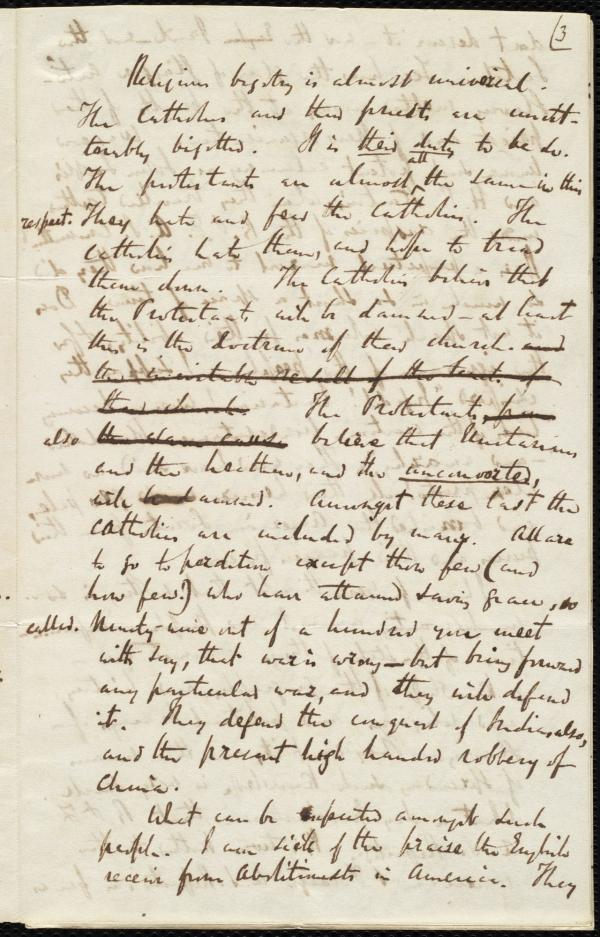 (3
Religious bigotry is almost universal.
The Catholics and their priests are unut-
terably bigotted. It is their duty to be so.
The protestants are almost all the same in this
respect. They hate and fear the Catholics. The
Catholics hate them, and hope to tread
them down. The Catholics believe that
the Protestants will be damned - at least
this is the doctrine of their church. and
the inevitable result of the tenets of
their church. The Protestants, from
also the same cause believe that Unitarians
and the heathen, and the unconverted,
will be damned. Amongst these last the
Catholics are included by many. All are
to go to perdition except those few (and
how few!) who have attained saving grace, so
called. Ninety-nine out of a hundred you meet
with say, that war is wrong - but bring forward
any particular war, and they will defend
it. They defend the conquest of India, also,
and the present high handed robbery of
China.
What can be expected amongst such
people. I am sick of the praise the English
receive from Abolitionists in America. They